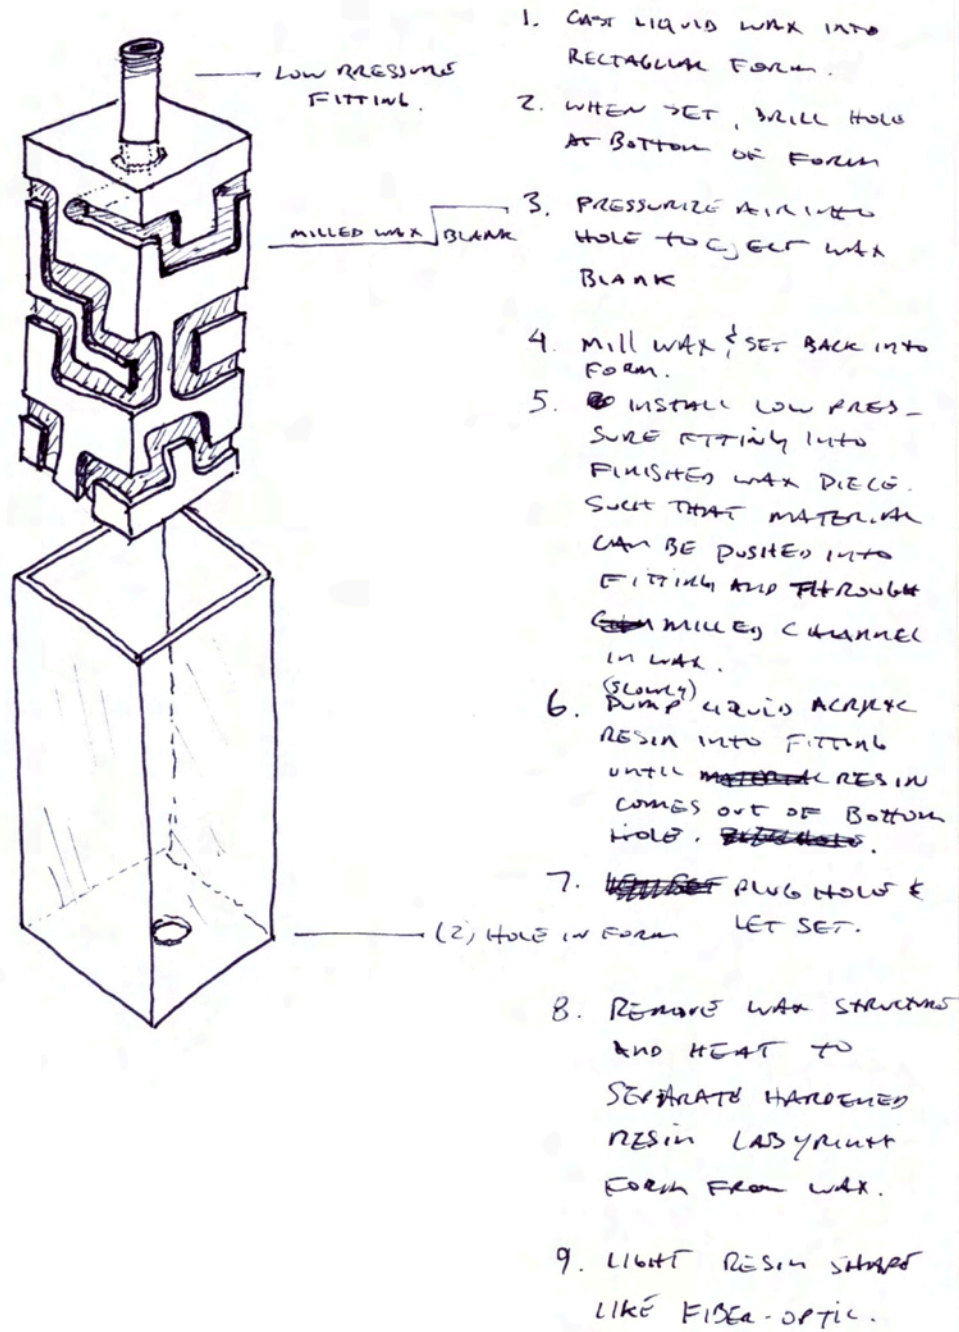 LOW PRESSURE
FITTING.
MILLED WAX BLANK
(2) HOLE IN FORM
1. CAST LIQUID WAX INTO
RECTAGULAR FORM.
2. WHEN SET, DRILL HOLE
AT BOTTOM OF FORM
3. PRESSURIZE AIR INTO
HOLE TO EJECT WAX
BLANK
4. MILL WAX & SET BACK INTO
FORM.
5. INSTALL LOW PRES-
SURE FITTING INTO
FINISHED WAX PIECE.
SUCH THAT MATERIAL
CAN BE PUSHED INTO
FITTING AND THROUGH
MILLED CHANNEL
IN WAX.
(SLOWLY)
6. PUMP LIQUID ACRYLIC
RESIN INTO FITTING
UNTIL MATERIAL RESIN
COMES OUT OF BOTTOM
HOLE.
7. PLUG HOLE &
LET SET.
8. REMOVE WAX STRUCTURE
AND HEAT TO
SEPARATE HARDENED
RESIN LABYRINTH
FORM FROM WAX.
9. LIGHT RESIN SHAPE
LIKE FIBER-OPTIC.